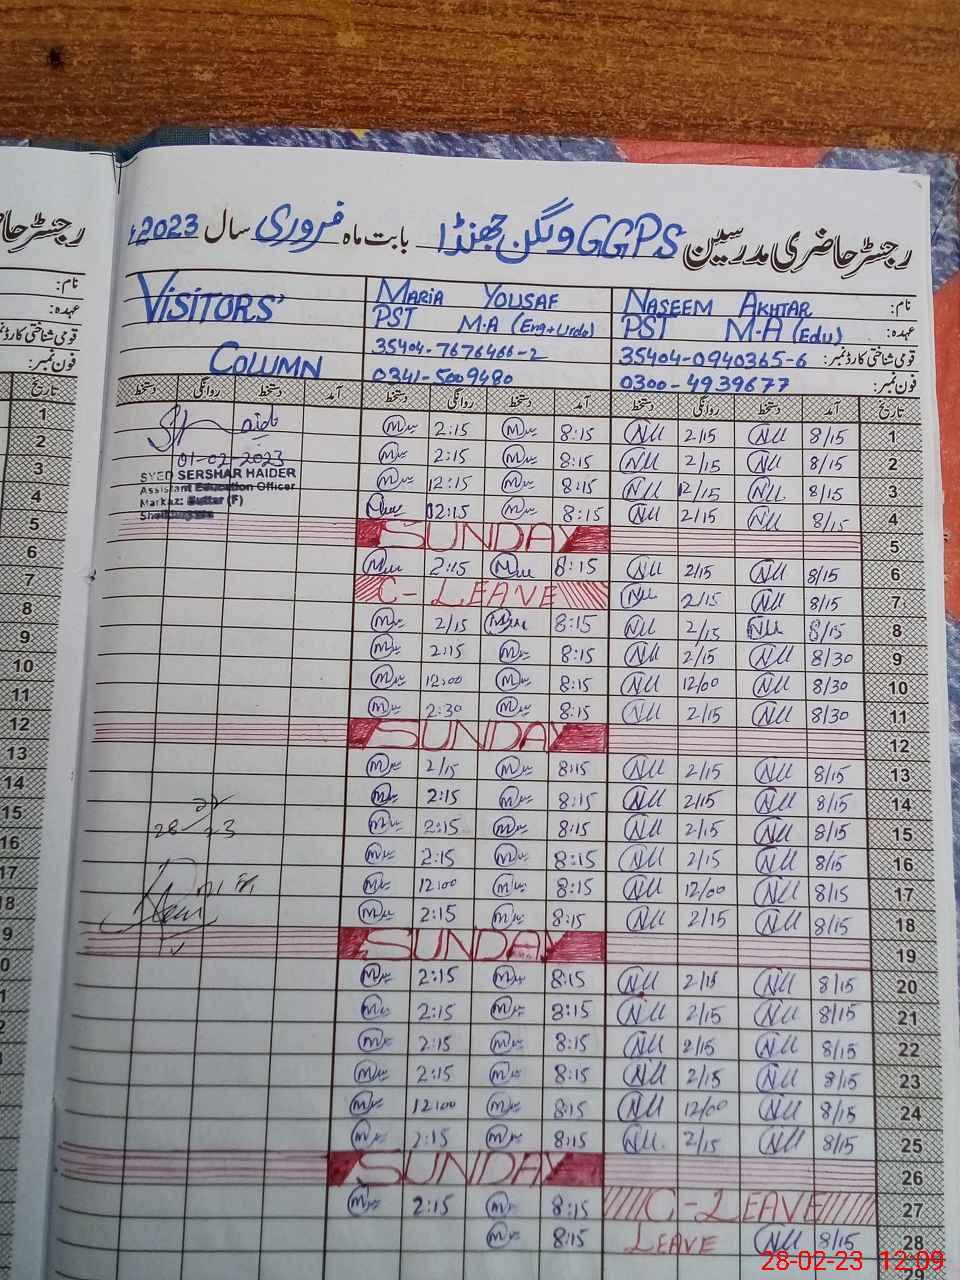 رجسٹر حاضری مدرسین GGPS وگن جھنڈا بابت ماہ فروری سال 2023ء
نام: NASEEM AKHTAR MARIA YOUSAF VISITORS'
عہدہ: PST M.A (Edu) PST M.A (Eng+Urdu)
قومی شناختی کارڈ نمبر: 35404-0940365-6 35404-7676466-2 COLUMN
فون نمبر: 0300-4939677 0341-5009480
تاریخ آمد دستخط روانگی دستخط آمد دستخط روانگی دستخط آمد دستخط روانگی دستخط
1 8/15 NU 2/15 NU 8:15 M 2:15 M
2 8/15 NU 2/15 NU 8:15 M 2:15 M
01-02-2023
SYED SERSHAR HAIDER
Assistant Education Officer
Markaz: (F)
3 8/15 NU 12/15 NU 8:15 M 12:15 M
4 8/15 NU 2/15 NU 8:15 M 02:15
5 SUNDAY
6 8/15 NU 2/15 NU 8:15 2:15
7 8/15 NU 2/15 NU C-LEAVE
8 8/15 NU 2/15 NU 8:15 2/15 M
9 8/30 NU 2/15 NU 8:15 M 2:15 M
10 8/30 NU 12/00 NU 8:15 M 12:00 M
11 8/30 NU 2/15 NU 8:15 M 2:30 M
12 SUNDAY
13 8/15 NU 2/15 NU 8:15 M 2/15 M
14 8/15 NU 2/15 NU 8:15 M 2:15 M
15 8/15 NU 2/15 NU 8:15 M 2:15 M
16 8/15 NU 2/15 NU 8:15 M 2:15 M
17 8/15 NU 12/00 NU 8:15 M 12:00 M
18 8/15 NU 2/15 NU 8:15 M 2:15 M
19 SUNDAY
20 8/15 NU 2/15 NU 8:15 M 2:15 M
21 8/15 NU 2/15 NU 8:15 M 2:15 M
22 8/15 NU 2/15 NU 8:15 M 2:15 M
23 8/15 NU 2/15 NU 8:15 M 2:15 M
24 8/15 NU 12/00 NU 8:15 M 12:00 M
25 8/15 NU 2/15 NU 8:15 M 2:15 M
26 SUNDAY
27 C-LEAVE 8:15 M 2:15 M
28 8/15 NU LEAVE 8:15 M
29
28-02-23 12:09